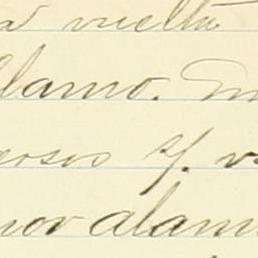 vuelta
lamo. En
ersos y/. v
nor alam